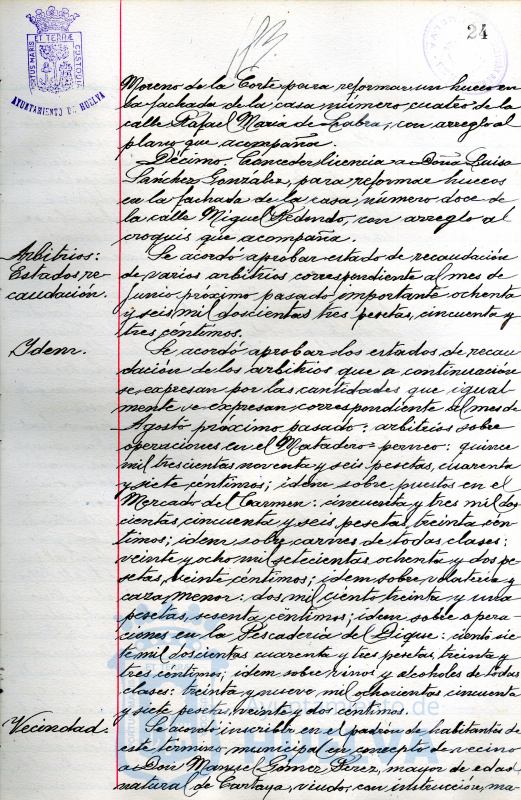 24
PORTUS MARIS
ET TERRAE
CUSTODIA
AYUNTAMIENTO DE HUELVA
Moreno de la Corte para reformar un hueco en
la fachada de la casa número cuatro de la
calle Rafael Maria de Labra, con arreglo al
plano que acompaña.
Décimo. Conceder licencia a Doña Luisa
Sánchez González, para reformar huecos
en la fachada de la casa, número doce de
la calle Miguel Redondo, con arreglo al
croquis que acompaña.
Arbitrios:
Estados, re-
caudación.
Se acordó aprobar estado de recaudación
de varios arbitrios correspondiente al mes de
Junio próximo pasado importante ochenta
y seis mil doscientas tres pesetas, cincuenta y
tres céntimos.
Idem.
Se acordó aprobar los estados de recau
dación de los arbitrios que a continuación
se expresan por las cantidades que igual
mente se expresan, correspondiente al mes de
Agosto próximo pasado: arbitrios sobre
operaciones en el Matadero
quince
mil trescientas noventa y seis pesetas, cuarenta
y siete céntimos; idem sobre puestos en el
Mercado del Carmen: cincuenta y tres mil dos
cientas, cincuenta y seis pesetas, treinta cén
timos; idem sobre carnes de todas clases:
veinte y ocho mil setecientas ochenta y dos pe
setas, veinte céntimos; idem sobre volateria y
caza menor: dos mil ciento treinta y una
pesetas, sesenta céntimos; idem sobre opera
ciones en la Pescaderia del Dique: ciento sie
te mil doscientas cuarenta y tres pesetas, treinta y
tres céntimos; idem sobre vinos y alcoholes de todas
clases: treinta y nueve mil ochocientas cincuenta
y siete pesetas, veinte y dos céntimos.
Vecindad.
Se acordó inscribir en el padrón de habitantes de
este término municipal en concepto de vecino
a Don Manuel Gómez Pérez, mayor de edad
natural de Cartaya, viudo, con instrucción, ma-
Ayuntamiento de
HUELVA